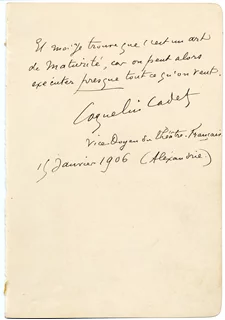 Et moi je trouve que c'est un art
de Maturité, car on peut alors
exécuter presque tout ce qu'on veut.
Coquelin Cadet
Vice-Doyen du théâtre-Français
15 Janvier 1906 (Alexandrie)